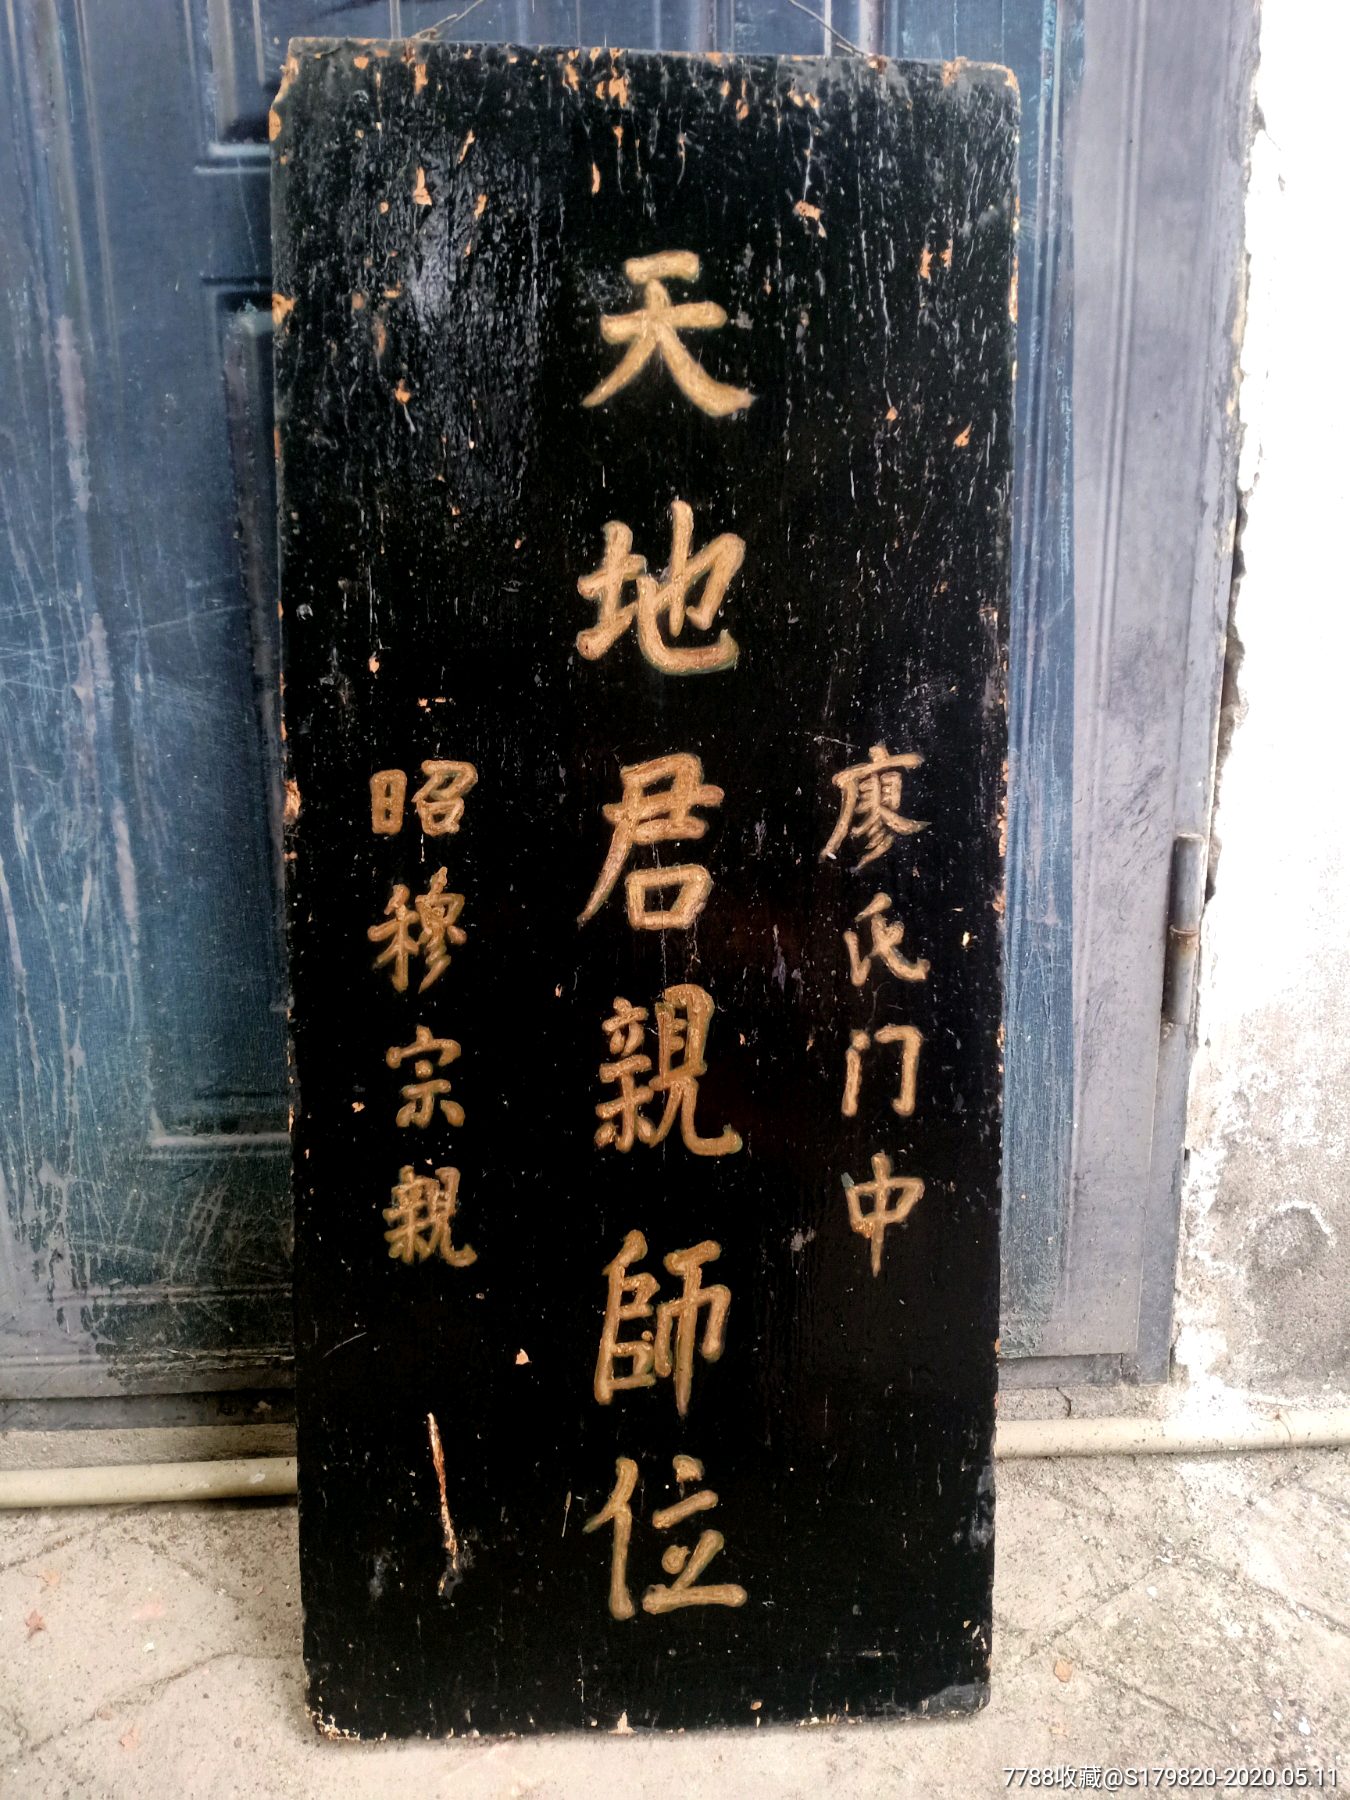 廖氏门中
天地君親師位
昭穆宗親
7788收藏@S179820-2020.05.11